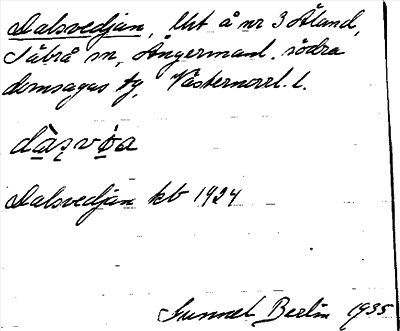 Dalsvedjan, lht å nr 3 Åland,
Säbrå sn, Ångermanl. södra
domsagas tg, Västernorrl. l.
dàṣvia
Dalsvedjan kb 1924
Gunnel Berlin 1935